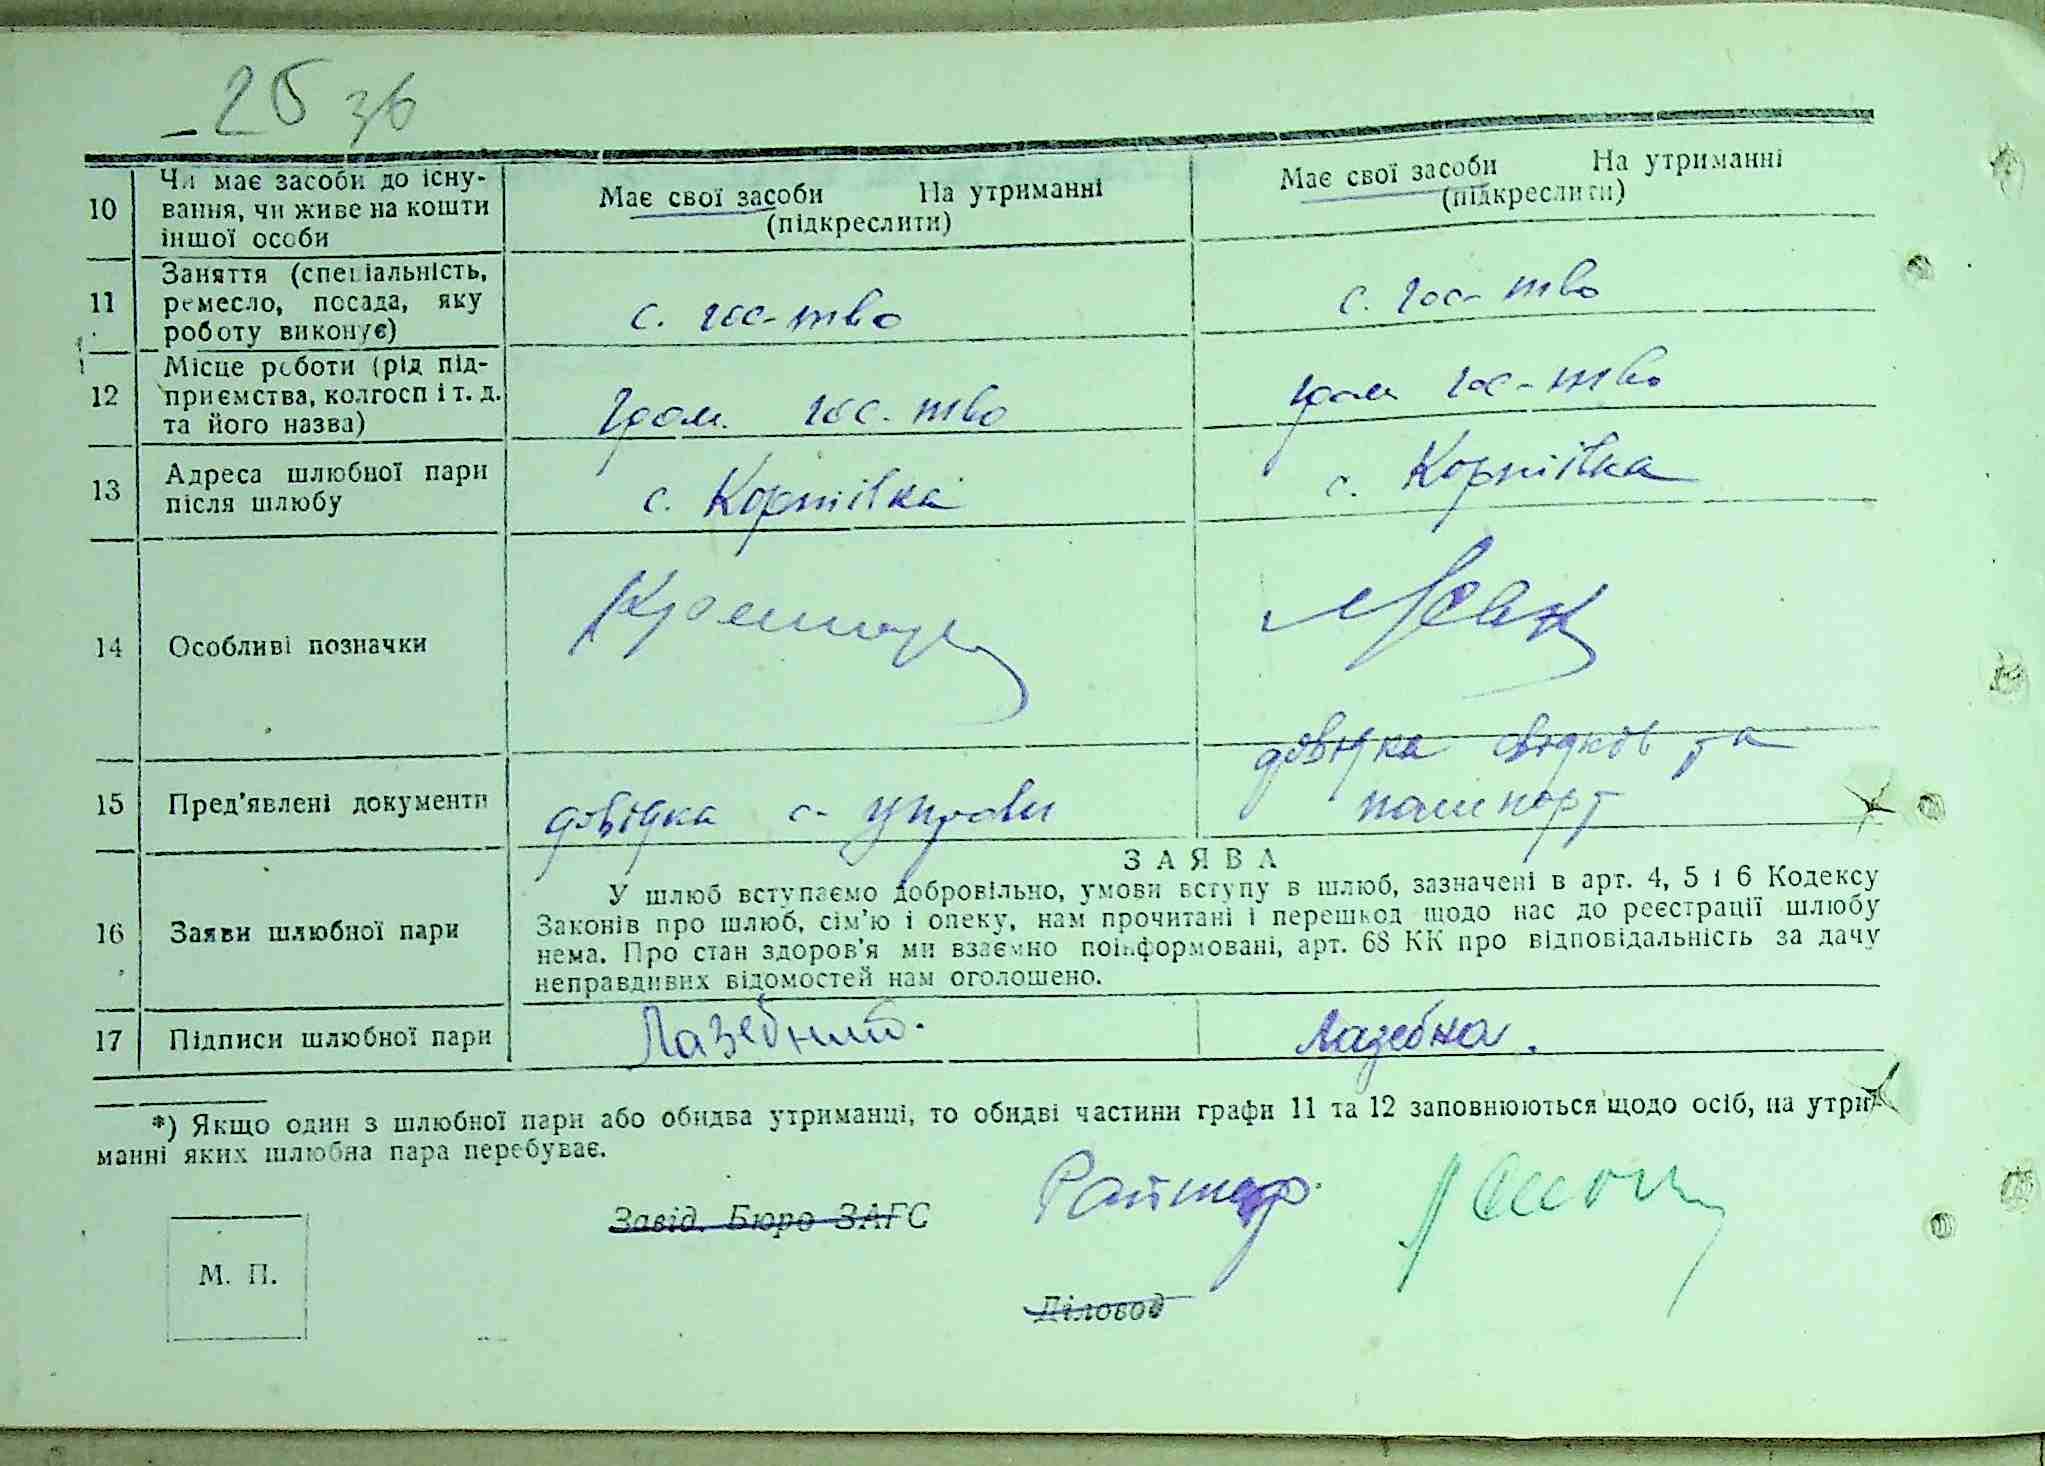 25 зв
10 Чи має засоби до існу-
вання, чи живе на кошти
іншої особи
Має свої засоби На утриманні
(підкреслити)
Має свої засоби На утриманні
(підкреслити)
11 Заняття (спеціальність,
ремесло, посада, яку
роботу виконує)
с. гос-тво
с. гос-тво
12 Місце роботи (рід під-
приємства, колгосп і т. д.
та його назва)
гром. гос-тво
гром гос-тво
13 Адреса шлюбної пари
після шлюбу
с. Корпівка
с. Корпівка
14 Особливі позначки
15 Пред'явлені документи
довідка с. управи
довідка свідків та
пашпорт
16 Заяви шлюбної пари
ЗАЯВА
У шлюб вступаємо добровільно, умови вступу в шлюб, зазначені в арт. 4, 5 і 6 Кодексу
Законів про шлюб, сім'ю і опеку, нам прочитані і перешкод щодо нас до реєстрації шлюбу
нема. Про стан здоров'я ми взаємно поінформовані, арт. 68 КК про відповідальність за дачу
неправдивих відомостей нам оголошено.
17 Підписи шлюбної пари
Лазебний.
Лазебна.
*) Якщо один з шлюбної пари або обидва утриманці, то обидві частини графи 11 та 12 заповнюються щодо осіб, на утри-
манні яких шлюбна пара перебуває.
Завід. Бюро ЗАГС
М. П.
Діловод